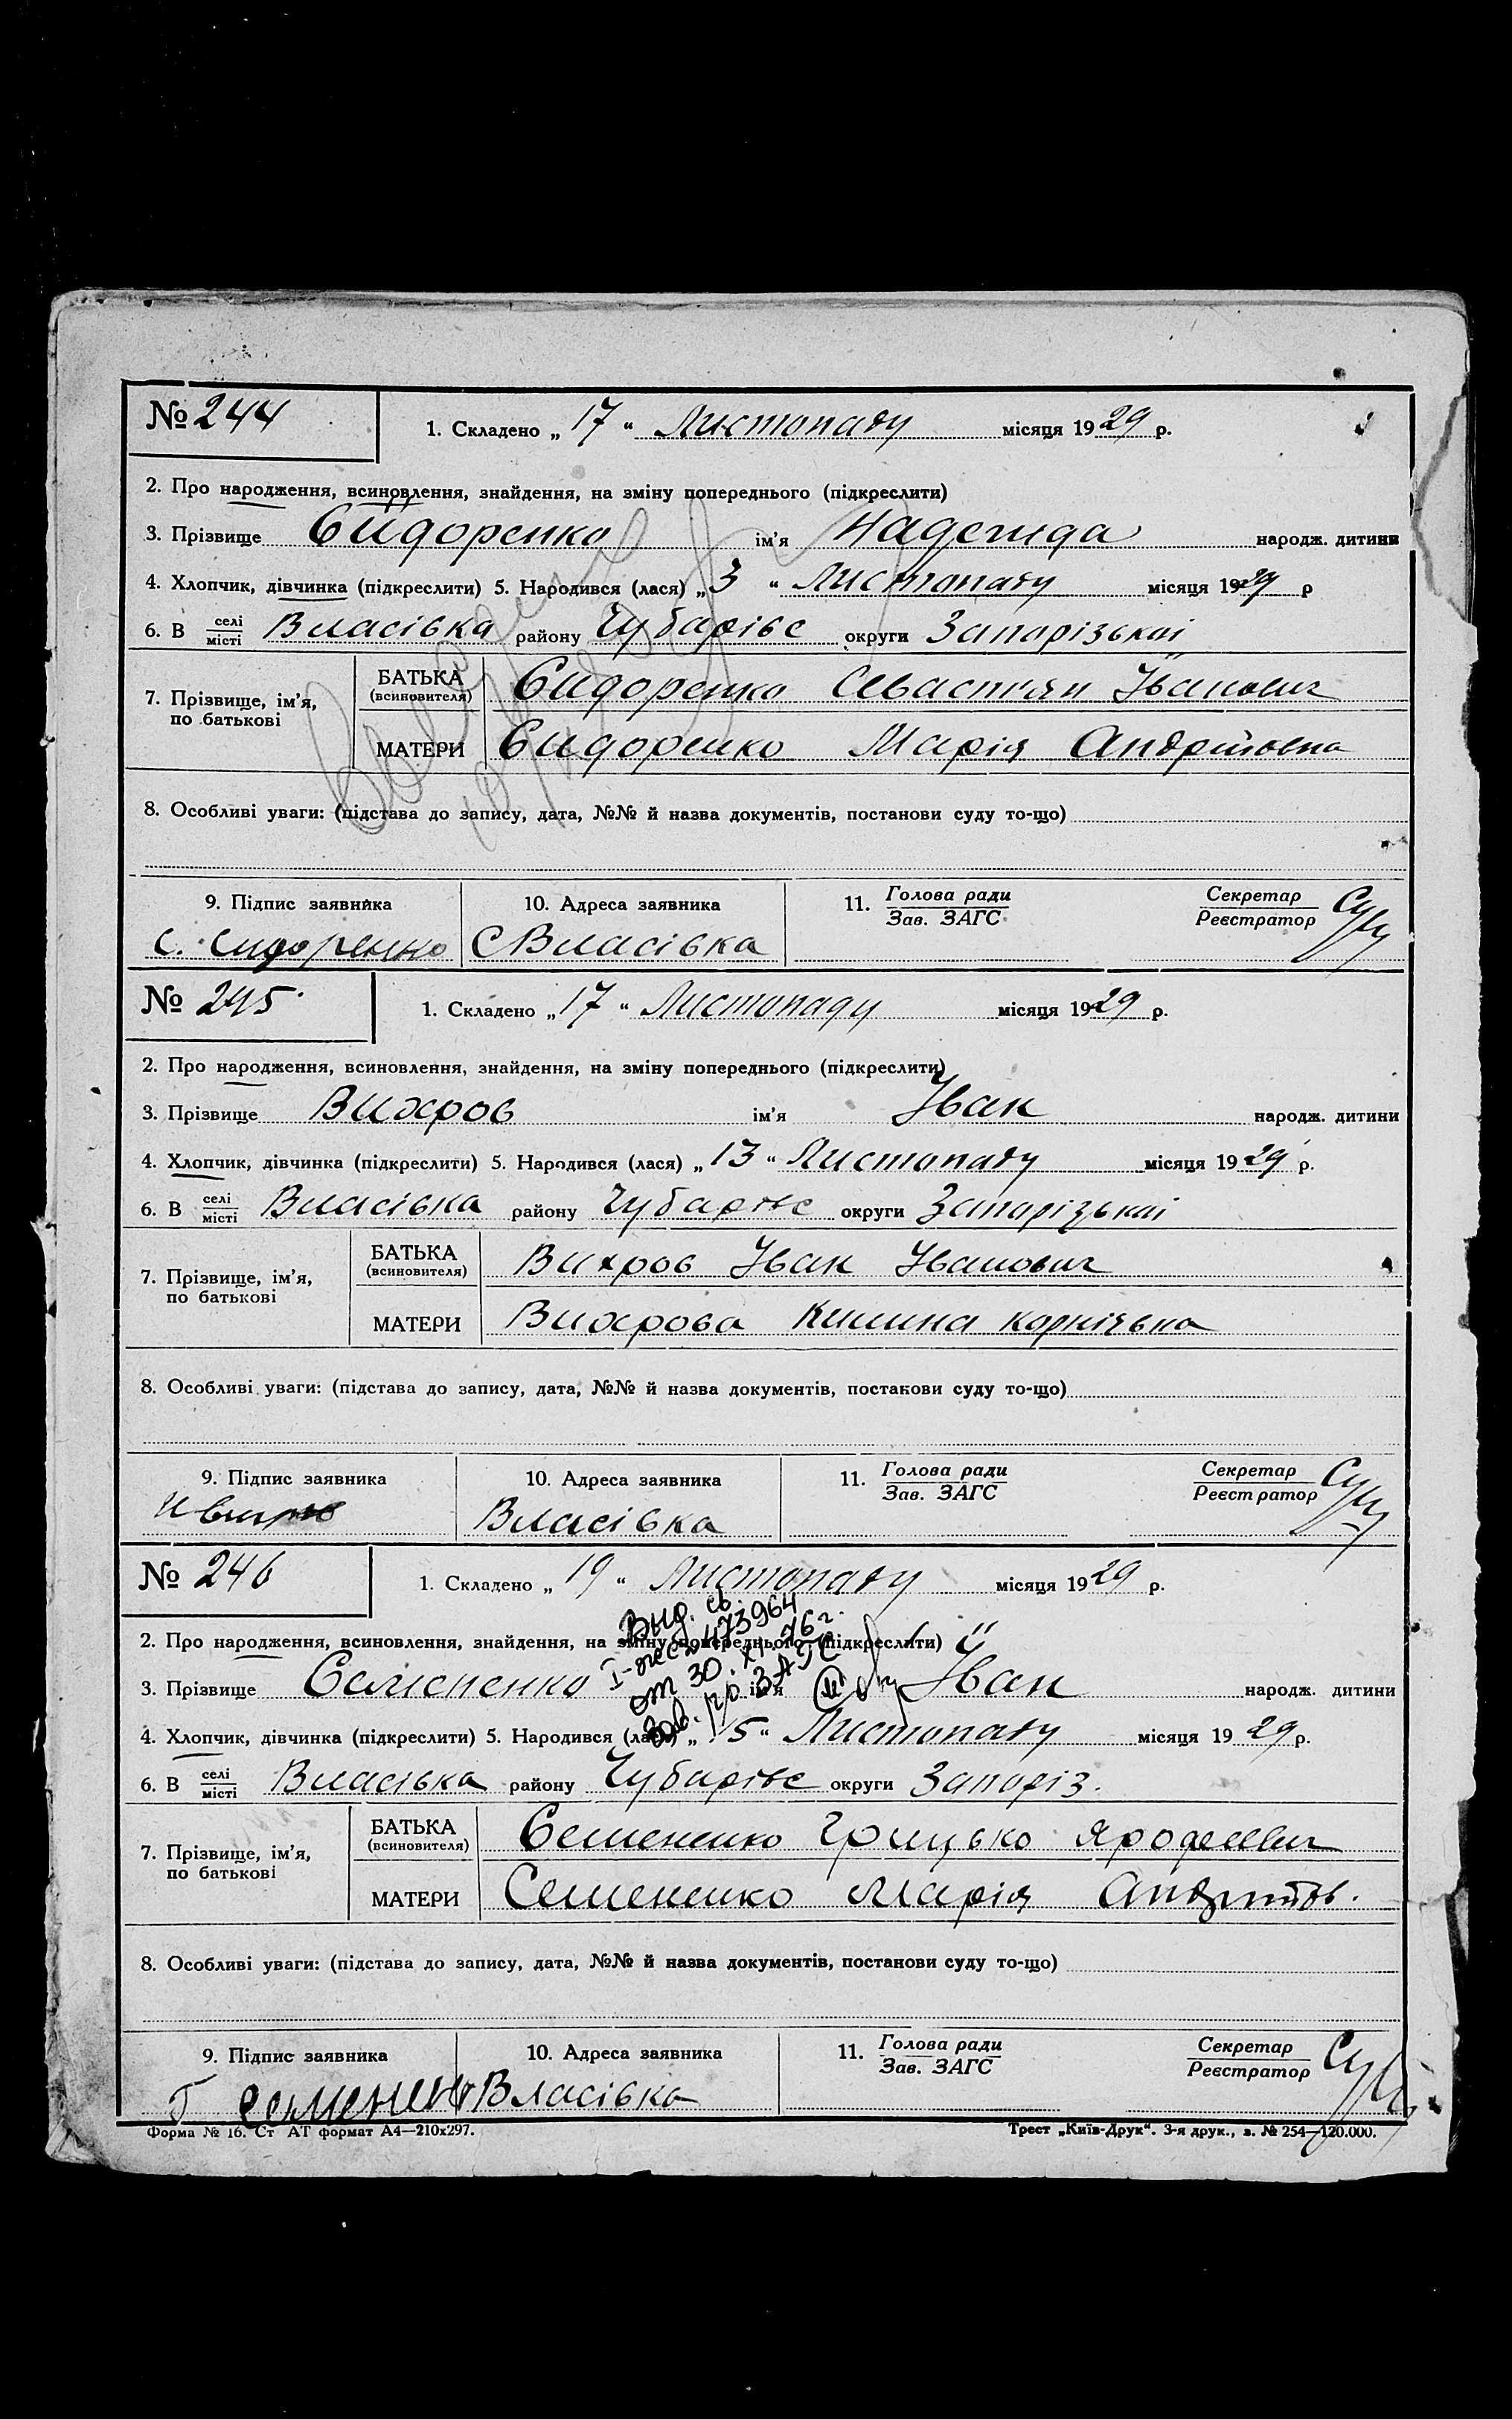 № 244
1. Складено „ 17 “ Листопаду місяця 1929 р.
2. Про народження, всиновлення, знайдення, на зміну попереднього (підкреслити)
3. Прізвище Сидоренко ім'я Надежда народж. дитини
4. Хлопчик, дівчинка (підкреслити) 5. Народився (лася) „ 3 “ Листопаду місяця 1929 р
6. В селі/місті Власівка району Чубарівс округи Запорізької
7. Прізвище, ім'я, по батькові
БАТЬКА (всиновителя) Сидоренко Севастиян Іванович
МАТЕРИ Сидоренко Марія Андріївна
8. Особливі уваги: (підстава до запису, дата, №№ й назва документів, постанови суду то-що)
9. Підпис заявника 10. Адреса заявника 11. Голова ради/Зав. ЗАГС Секретар/Реєстратор
С. Сидоренко С Власівка
№ 245
1. Складено „ 17 “ Листопаду місяця 1929 р.
2. Про народження, всиновлення, знайдення, на зміну попереднього (підкреслити)
3. Прізвище Вихров ім'я Іван народж. дитини
4. Хлопчик, дівчинка (підкреслити) 5. Народився (лася) „ 13 “ Листопаду місяця 1929 р.
6. В селі/місті Власівка району Чубарівс округи Запорізької
7. Прізвище, ім'я, по батькові
БАТЬКА (всиновителя) Вихров Іван Іванович
МАТЕРИ Вихрова Килина Корніївна
8. Особливі уваги: (підстава до запису, дата, №№ й назва документів, постанови суду то-що)
9. Підпис заявника 10. Адреса заявника 11. Голова ради/Зав. ЗАГС Секретар/Реєстратор
Власівка
№ 246
1. Складено „ 19 “ Листопаду місяця 1929 р.
Выд. св.
I-жс № 473964
от 30.XI.76 г.
Зав. р/о ЗАГС
2. Про народження, всиновлення, знайдення, на зміну попереднього (підкреслити)
3. Прізвище Семененко ім'я Іван народж. дитини
4. Хлопчик, дівчинка (підкреслити) 5. Народився (лася) „ 15 “ Листопаду місяця 1929 р.
6. В селі/місті Власівка району Чубарівс округи Запоріз.
7. Прізвище, ім'я, по батькові
БАТЬКА (всиновителя) Семененко Грицько Ярофеевич
МАТЕРИ Семененко Марія
8. Особливі уваги: (підстава до запису, дата, №№ й назва документів, постанови суду то-що)
9. Підпис заявника 10. Адреса заявника 11. Голова ради/Зав. ЗАГС Секретар/Реєстратор
Г Семенен Власівка
Форма № 16. Ст АТ формат А4—210х297. Трест „Київ-Друк“. 3-я друк., з. № 254—120.000.